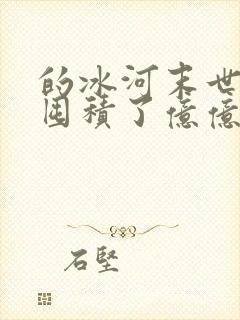 的冰河末世
囤積了億億
石堅